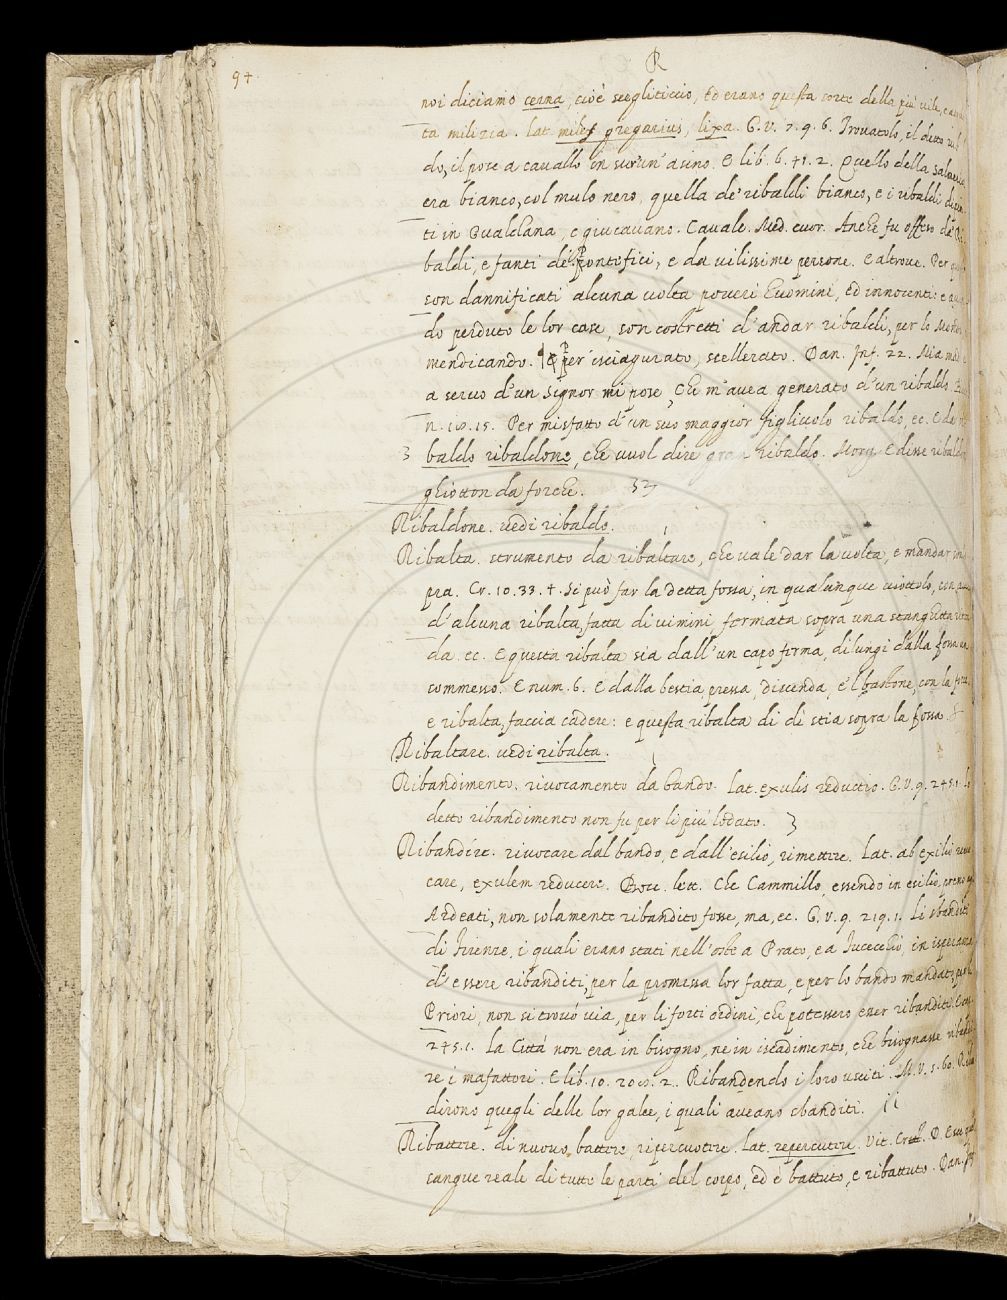 94.
R
noi diciamo cerna, cioè scegliticcio, Ed erano questa sorte della più vile, e
ta milizia. lat. miles gregarius, lixa. G. V. 7. 9. 6. Trovatolo, il detto
do, il pose a cavallo in sur un' asino. E lib. 6. 41. 2. Quello della
era bianco, col mulo nero, quella de' ribaldi bianco, e i ribaldi
ti in Gualdana, e giucavano. Cavalc. Med. cuor. Anche fu offeso da'
baldi, e fanti de' Pontefici, e da vilissime persone. E altrove. Per
son dannificati alcuna volta poveri huomini, ed innocenti: e
do perduto le lor case, son costretti d' andar ribaldi, per lo
mendicando. ¶ Per isciagurato, scellerato. Dan. Inf. 22. Mia
a servo d'un Signor mi pose, Che m' avea generato d'un ribaldo.
n. 10. 15. Per misfatto d' un suo maggior figliuolo ribaldo, ec. E da
3 baldo ribaldone, che vuol dire gran ribaldo. Morg. E disse ribaldo
ghiotton da forche.
Ribaldone. vedi ribaldo.
Ribalta. strumento da ribaltare, che vale dar la volta, e mandar
pra. Cr. 10. 33. 4. Si può far la detta fossa, in qualunque viottolo, con
d' alcuna ribalta, fatta di vimini, formata sopra una stanghetta
da ec. E questa ribalta sia dall' un capo ferma, dilungi dalla fossa un
commesso. E num. 6. E dalla bestia, pressa, discenda, e 'l bastone, con la
e ribalta, faccia cadere: e questa ribalta di dì stia sopra la fossa.
Ribaltare. vedi ribalta.
Ribandimento. rivocamento da bando. Lat. exulis reductio. G. V. 9. 245. 1.
detto ribandimento non fu per li più lodato.
Ribandire. rivocare dal bando, e dall' esilio, rimettere. Lat. ab exilio
care, exulem reducere. Bocc. lett. Che Cammillo, essendo in esilio,
Ardeati, non solamente ribandito fosse, ma, ec. G. V. 9. 219. 1. Li sbanditi
di Firenze, i quali erano stati nell' oste a Prato, e a Fucecchio, in isperanza
d' essere ribanditi, per la promessa lor fatta, e per lo bando mandato
Priori, non si trovò via, per li forti ordini, che potessero esser ribanditi.
245. 1. La Città non era in bisogno, ne in iscadimento, che bisognasse
re i mafattori. E lib. 10. 200. 2. Ribandendo i loro usciti. M. V. 5. 60.
dirono quegli delle lor galee, i quali aveano sbanditi.
Ribattere. di nuovo battere, ripercuotere. lat. repercutere. Vit. Crist. D.
canque reale di tutte le parti del corpo, ed è battuto, e ribattuto. Dan.